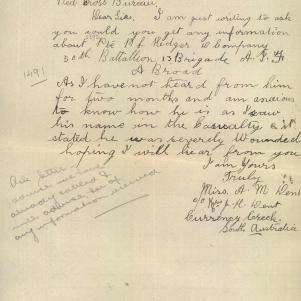 Red Cross Bureau,
Dear Sirs, I am just writing to ask
you would you get any information
about Pte W J Hedger W Company
50th Battallion 13 Brigade A.I.F
A Broad
1491
As I have not heard from him
for two months and am anxious
to know how he is as I saw
his name in the Casualty list
stated he was severly Wounded
hoping I will hear from you
I am Yours
Truly
Miss. A M Dent
c/o Mrs J. H Dent
Currency Creek.
South Australia
Ack letter
already cabled &
will advise her of
any information received